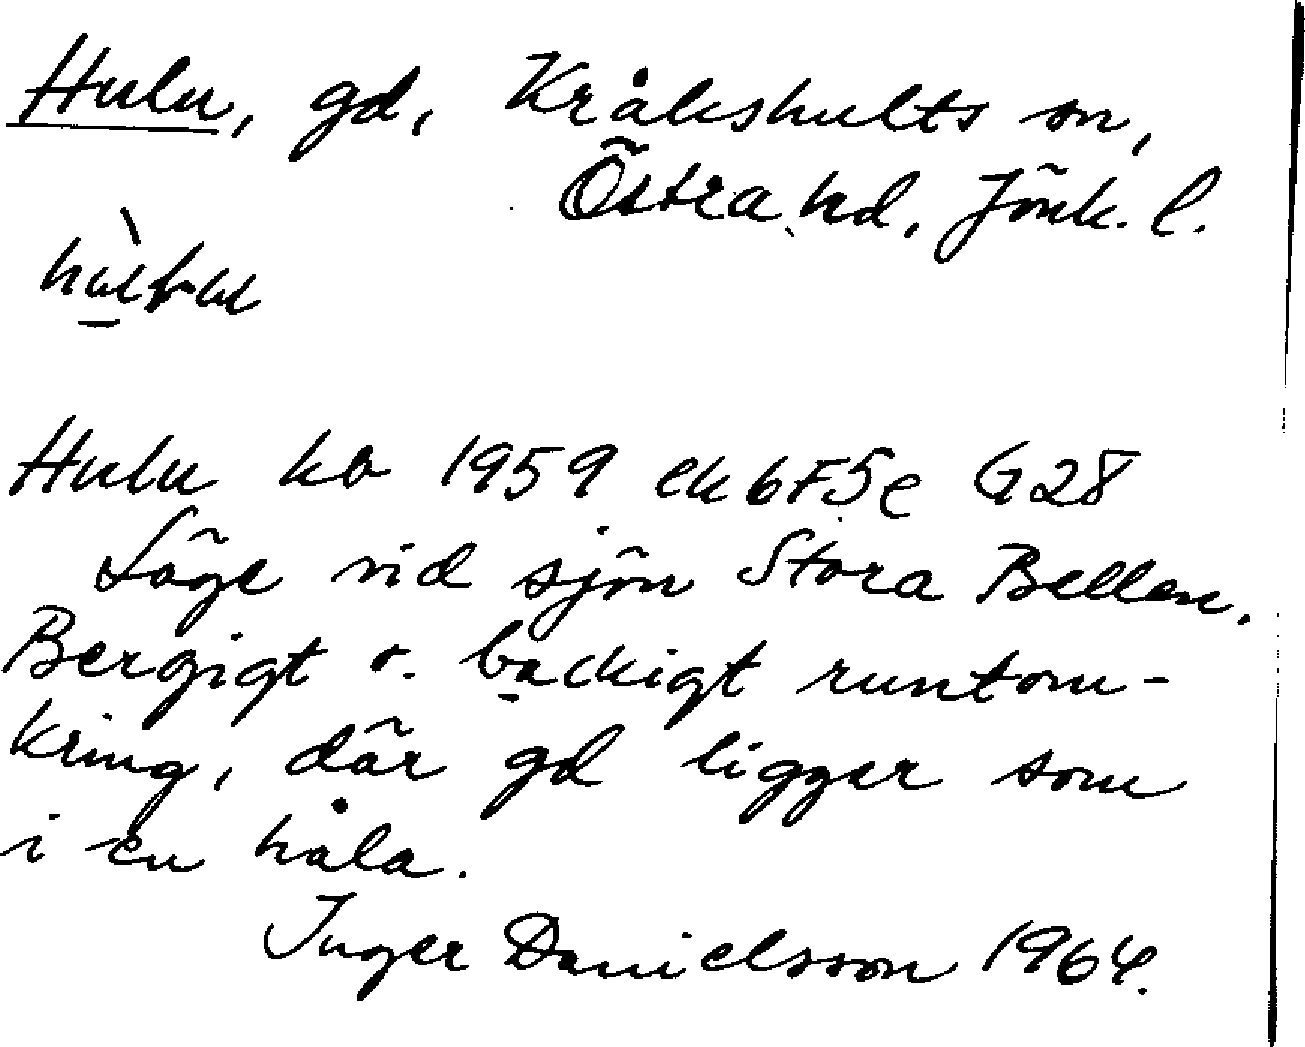 Hulu, gd, Kråkshults sn,
Östra hd, Jönk. l.
Hulu kb 1959 ek 6F5e G28
Läge vid sjön Stora Bellen.
Bergigt o. backigt runtom-
kring, där gd ligger som
i en håla.
Inger Danielsson 1964.